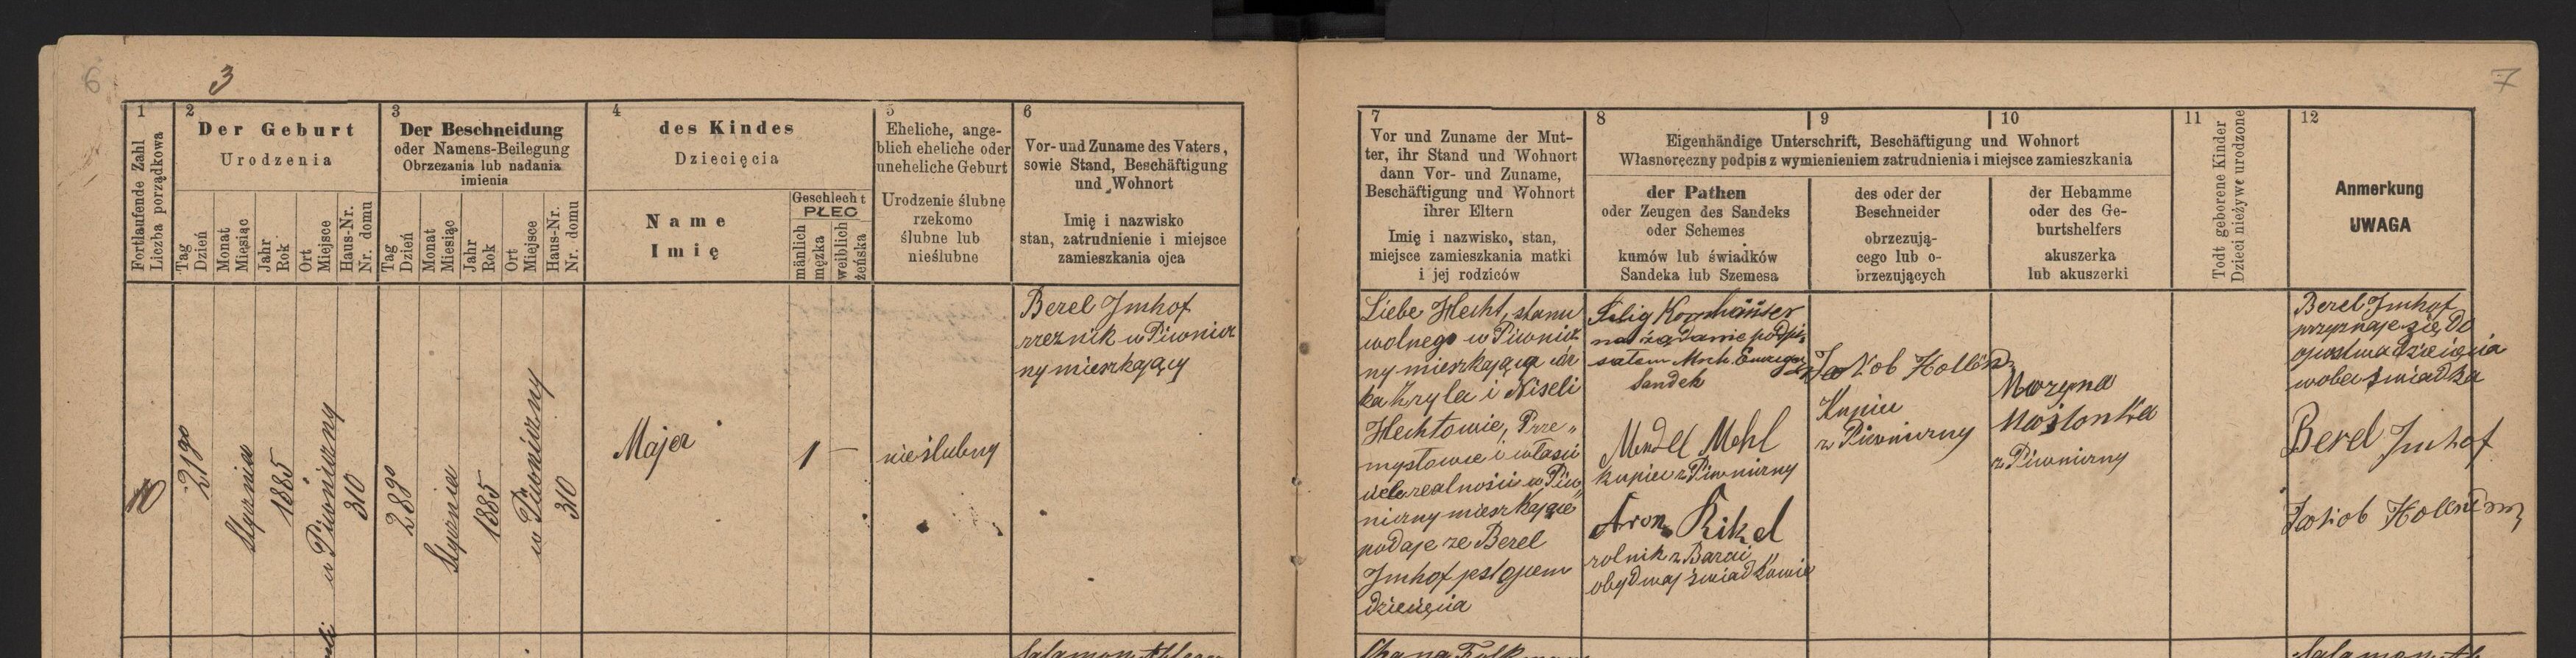 6
3
7
1
2
3
4
5
6
7
8
9
10
11
12
Fortlaufende Zahl
Liczba porządkowa
Der Geburt
Urodzenia
Tag
Dzień
Monat
Mięsiąc
Jahr
Rok
Ort
Miejsce
Haus-Nr.
Nr. domu
Der Beschneidung
oder Namens-Beilegung
Obrzezania lub nadania
imienia
Tag
Dzień
Monat
Miesiąc
Jahr
Rok
Ort
Miejsce
Haus-Nr.
Nr. domu
des Kindes
Dziecięcia
Name
Imię
Geschlecht
PŁEĆ
mänlich
męzka
weiblich
żeńska
Eheliche, ange-
blich eheliche oder
uneheliche Geburt
Urodzenie ślubne
rzekomo
ślubne lub
nieślubne
Vor- und Zuname des Vaters,
sowie Stand, Beschäftigung
und Wohnort
Imię i nazwisko
stan, zatrudnienie i miejsce
zamieszkania ojca
Vor und Zuname der Mut-
ter, ihr Stand und Wohnort
dann Vor- und Zuname,
Beschäftigung und Wohnort
ihrer Eltern
Imię i nazwisko, stan,
miejsce zamieszkania matki
i jej rodziców
Eigenhändige Unterschrift, Beschäftigung und Wohnort
Własnoręczny podpis z wymienieniem zatrudnienia i miejsce zamieszkania
der Pathen
oder Zeugen des Sandeks
oder Schemes
kumów lub świadków
Sandeka lub Szemesa
des oder der
Beschneider
obrzezują-
cego lub o-
brzezujących
der Hebamme
oder des Ge-
burtshelfers
akuszerka
lub akuszerki
Todt geborene Kinder
Dzieci nieżywe urodzone
Anmerkung
UWAGA
21go
Stycznia
1885
w Piwniczny
310
28go
Stycznia
1885
w Piwniczny
310
Majer
1 —
nieślubny
Berel Imhof
rzeznik w Piwnicz
ny mieszkający
Liebe Hecht, stanu
wolnego w Piwnicz
ny mieszkająca cór
ka Kryla i Niseli
Hechtowie, Prze„
mysłowce i właści
ciele realności w Piw„
niczny mieszkające
podaje ze Berel
Imhof jest ojcem
dziecięcia
Selig Kornhäuser
na żądanie podpi„
sałem
Sandek
Mendel Mehl
kupiec z Piwniczny
Aron Rikel
rolnik z
obydwaj świadkowie
Jakob Holländer
Kupiec
z Piwniczny
Maryna
Maślonka
z Piwniczny
Berel Imhof
przyznaje się do
ojcostwa dziecięcia
wobec świadka
Berel Imhof
Jakob Holländer